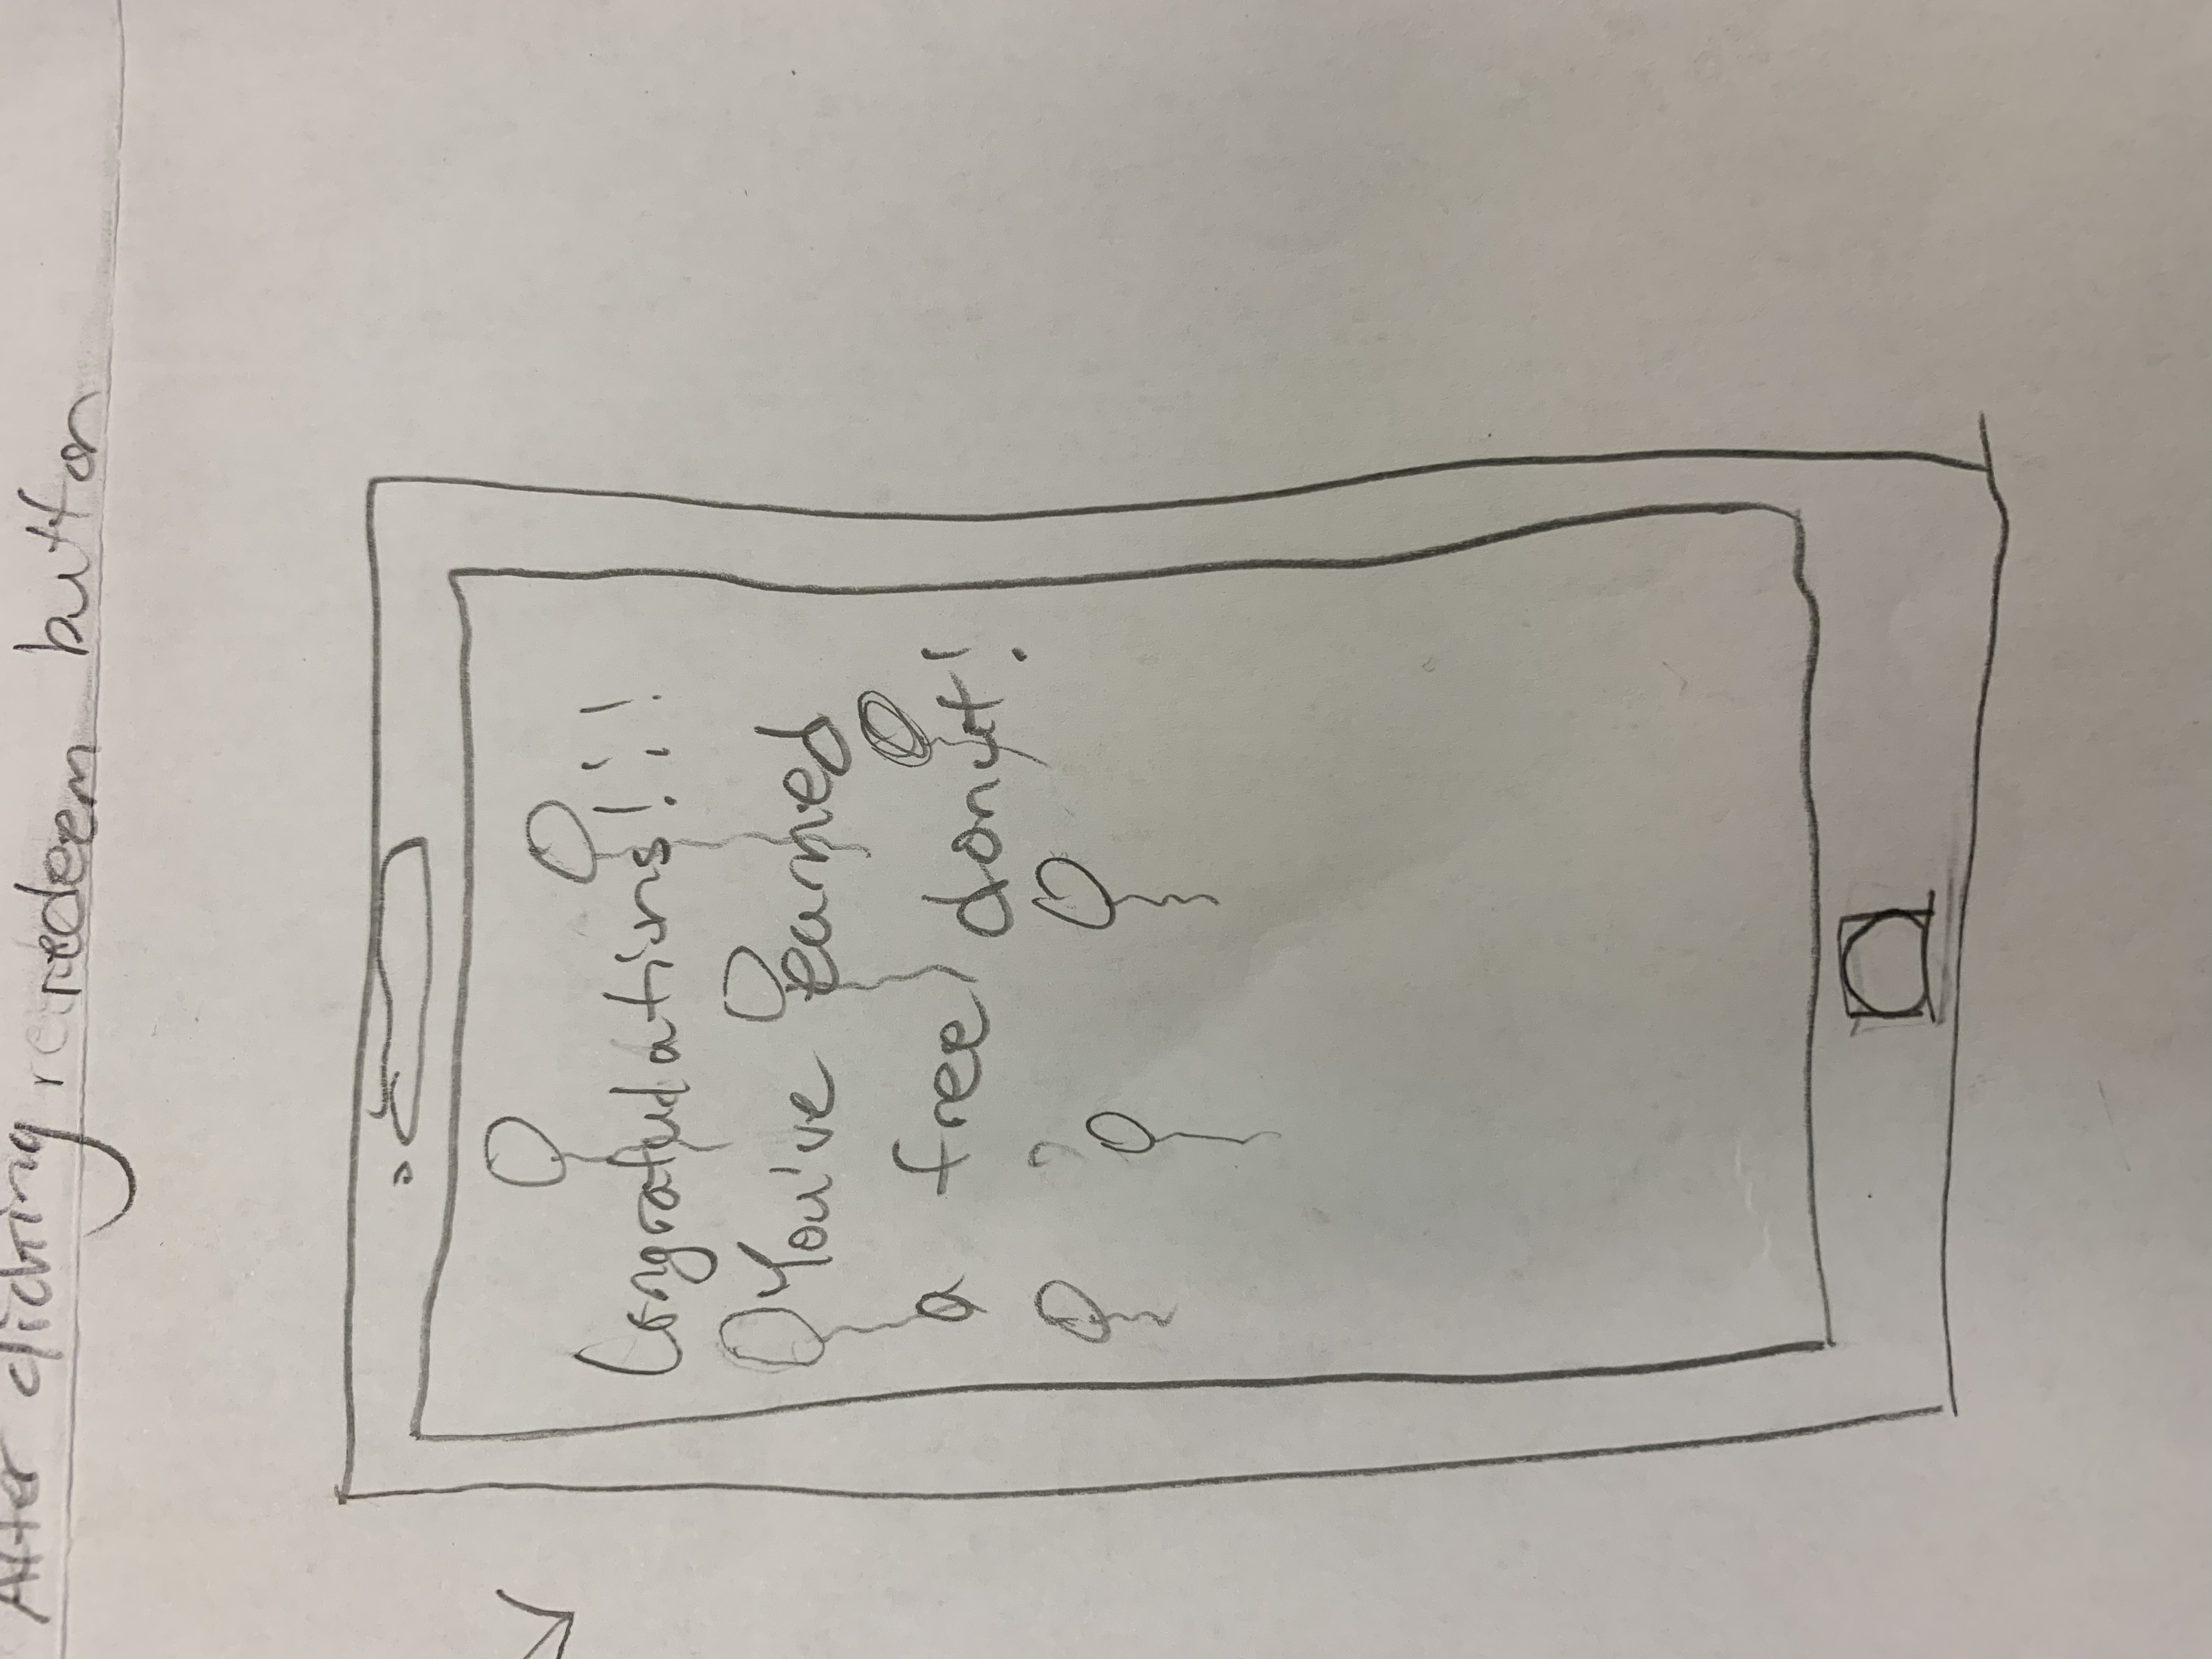 After clicking redeem button
Congratulations!¡!
You've earned
a free donut!